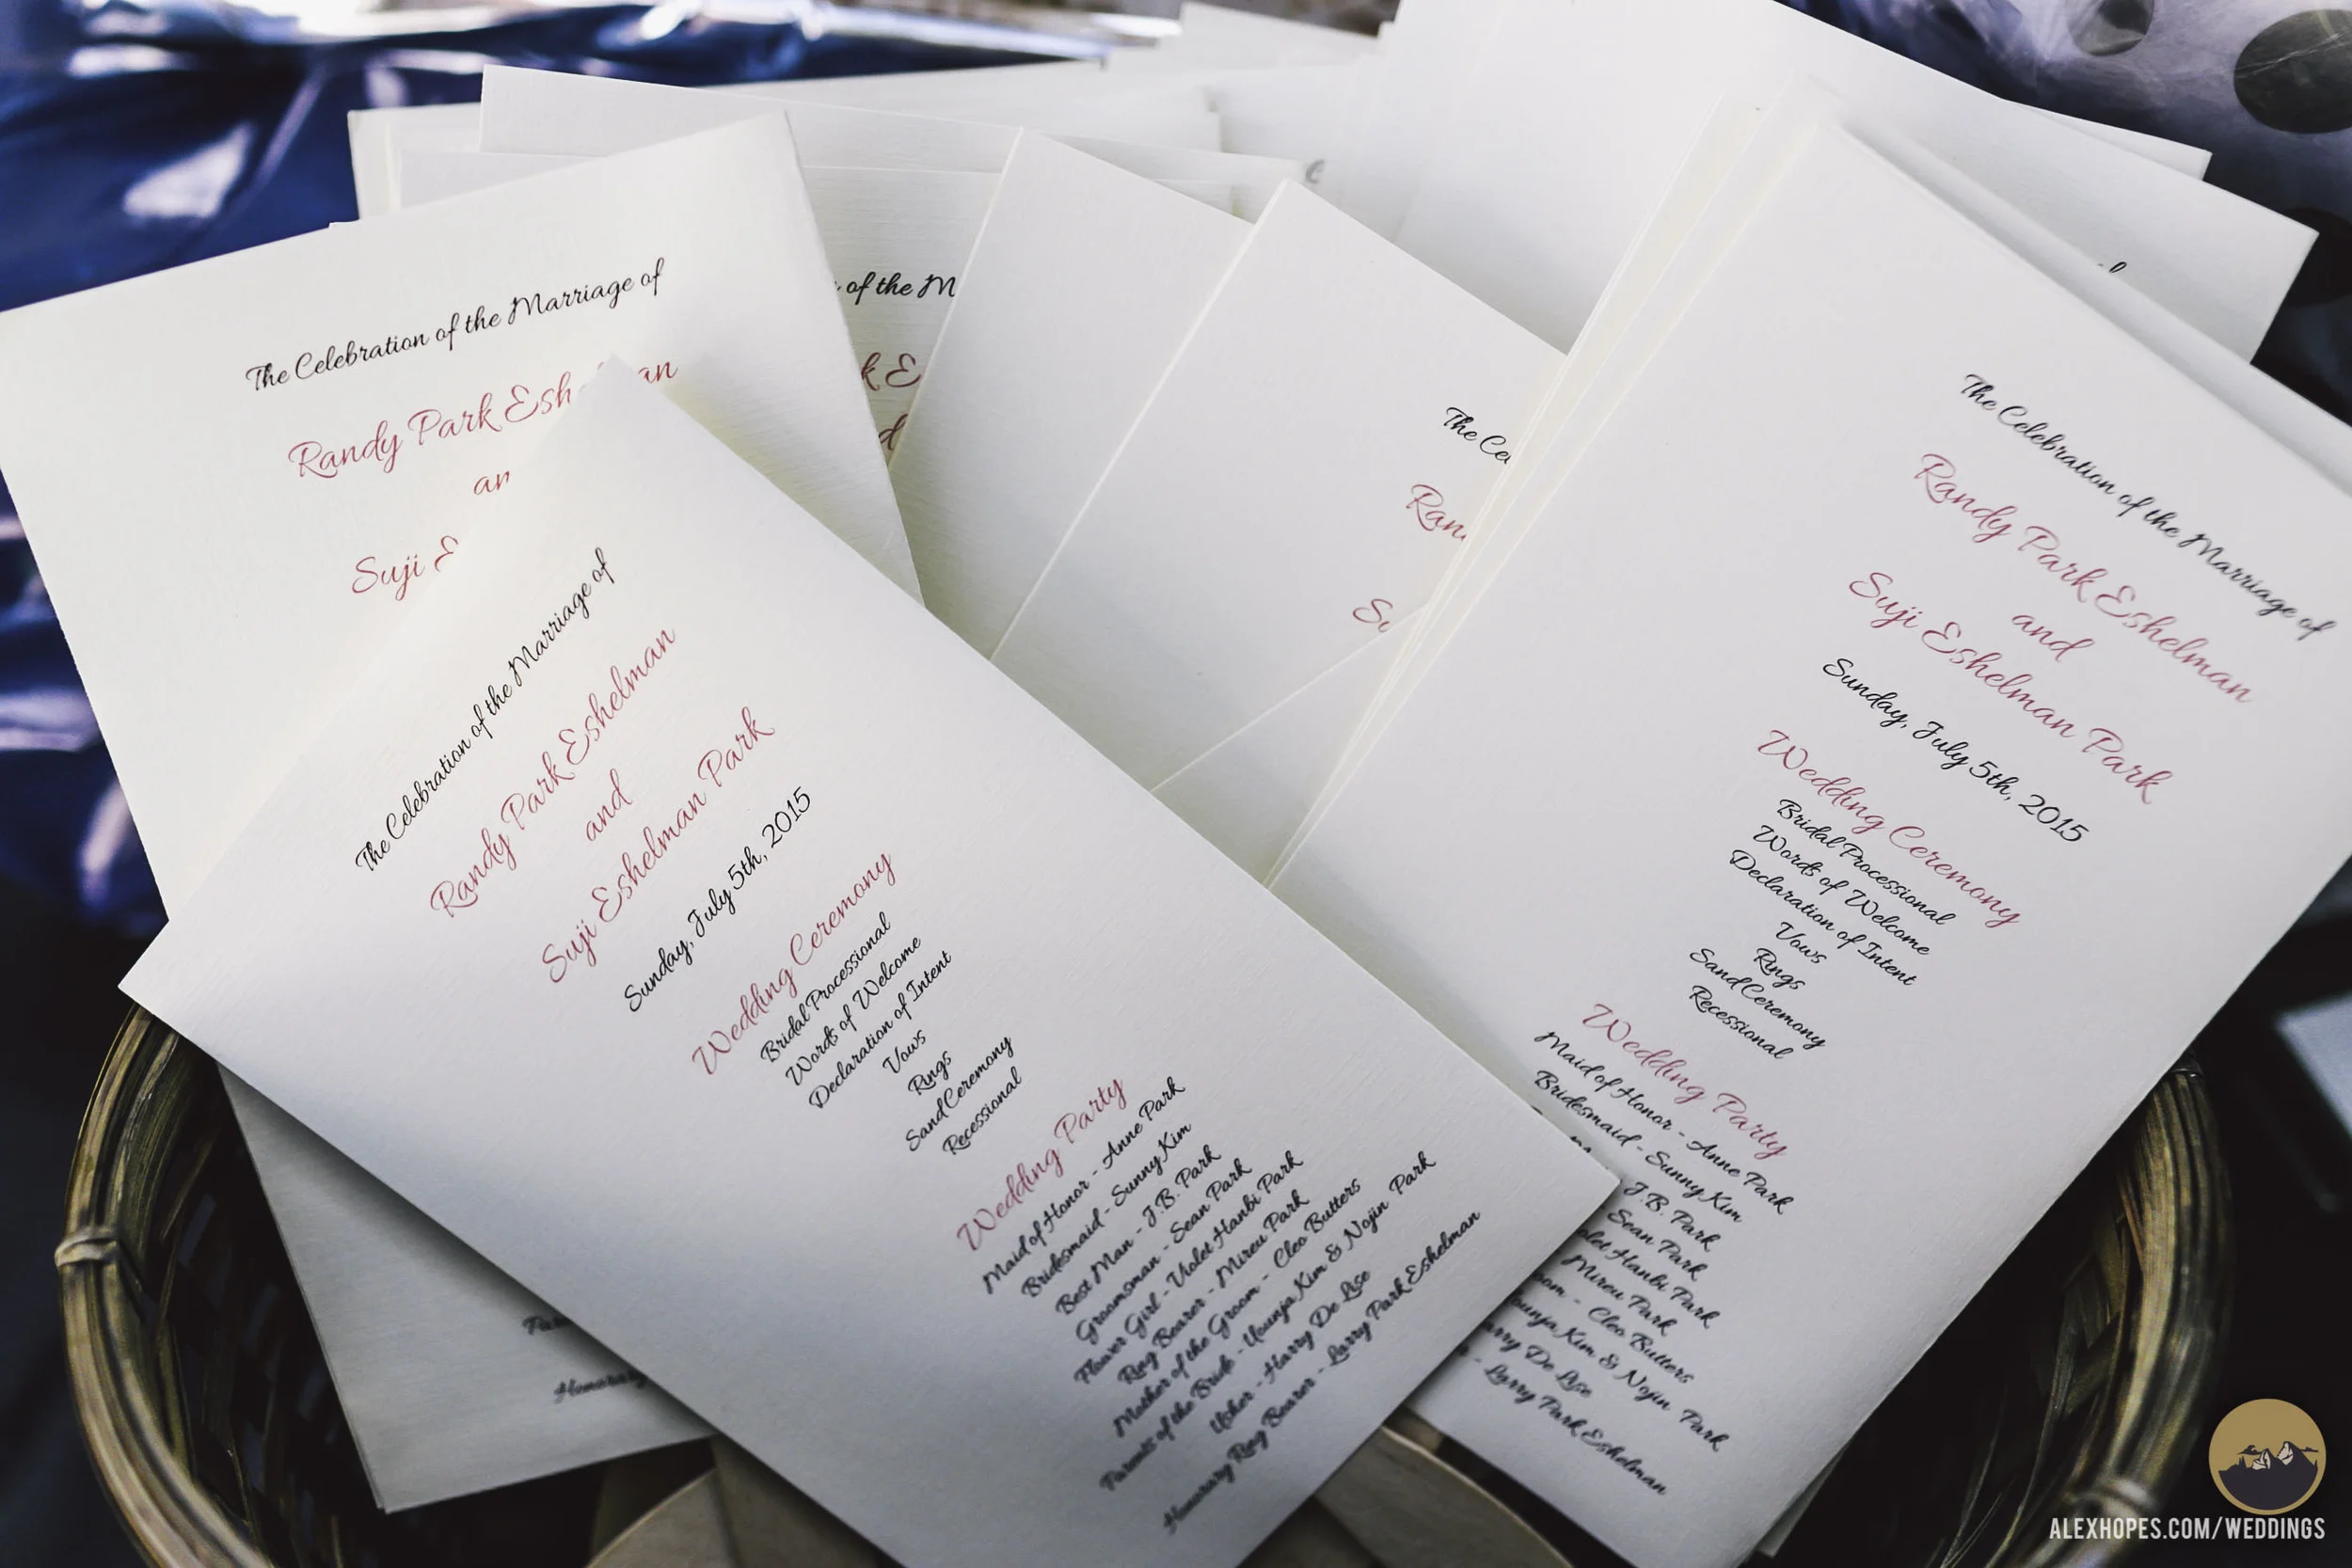 The Celebration of the Marriage of
Randy Park Esh an
an
Suji E
of the M
k E
d
The Ce
Ran
Su
The Celebration of the Marriage of
Randy Park Eshelman
and
Suji Eshelman Park
Sunday, July 5th, 2015
Wedding Ceremony
Bridal Processional
Words of Welcome
Declaration of Intent
Vows
Rings
Sand Ceremony
Recessional
Wedding Party
Maid of Honor - Anne Park
Bridesmaid - Sunny Kim
Best Man - J.B. Park
Groomsman - Sean Park
Flower Girl - Violet Hanbi Park
Ring Bearer - Mireu Park
Mother of the Groom - Cleo Butters
Parents of the Bride - Younja Kim & Nojin Park
Usher - Harry De Lise
Honorary Ring Bearer - Larry Park Eshelman
The Celebration of the Marriage of
Randy Park Eshelman
and
Suji Eshelman Park
Sunday, July 5th, 2015
Wedding Ceremony
Bridal Processional
Words of Welcome
Declaration of Intent
Vows
Rings
Sand Ceremony
Recessional
Wedding Party
Maid of Honor - Anne Park
Bridesmaid - Sunny Kim
J.B. Park
Sean Park
olet Hanbi Park
Mireu Park
oom - Cleo Butters
ounja Kim & Nojin Park
arry De Lise
- Larry Park Eshelman
Par
Honorary
ALEXHOPES.COM/WEDDINGS